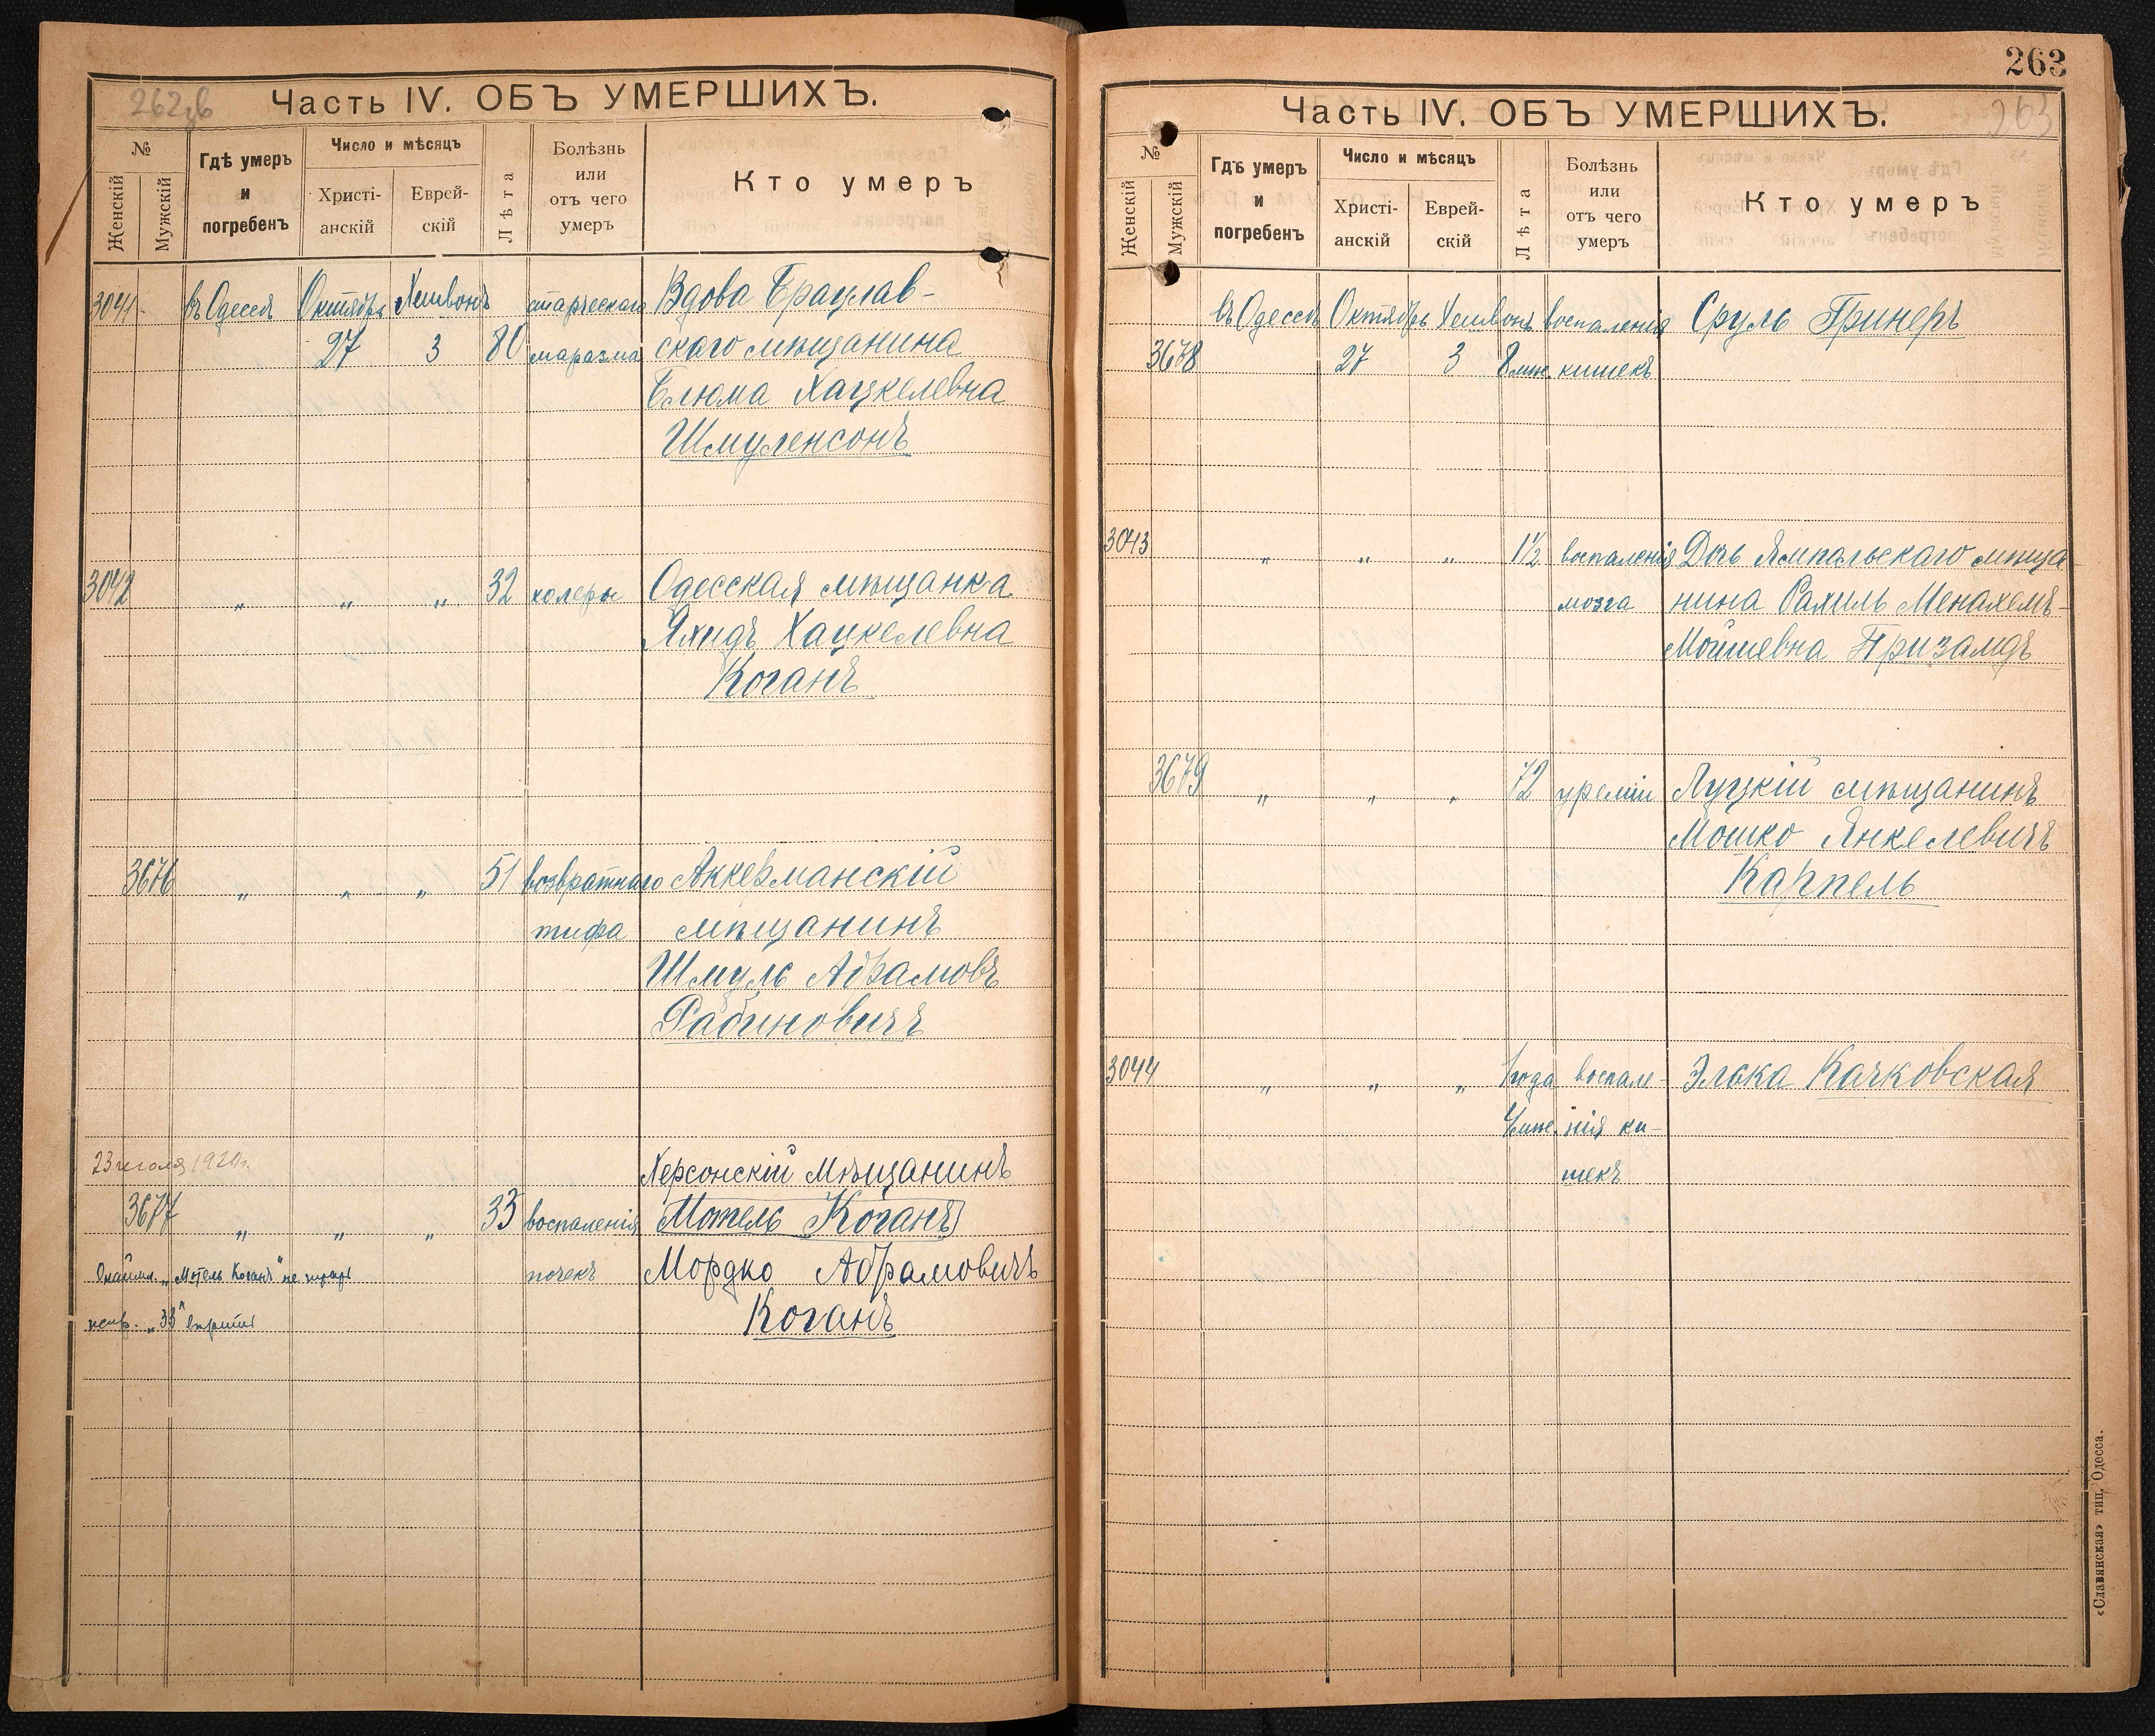 Часть IV. ОБЪ УМЕРШИХЪ.
№
Женскій
Мужскій
Гдѣ умеръ
и
погребенъ
Число и мѣсяцъ
Христі-
анскій
Еврей-
скій
Лѣта
Болѣзнь
или
отъ чего
умеръ
Кто умеръ
3041 въ Одессѣ Октябрь Хешвонъ старческаго Вдова Брацлав-
27 3 80 маразма скаго мѣщанина
Блюма Хацкелевна
Шмуленсонъ
3042 „ „ „ 32 холеры Одесская мѣщанка
Яхидъ Хацкелевна
Коганъ
3676 „ „ „ 51 возвратнаго Аккерманскій
тифа мѣщанинъ
Шмуль Абрамовъ
Рабиновичъ
23 іюля 1920г. Херсонскій мѣщанинъ
3677 „ „ „ 33 воспаленія Мотель Коганъ
„Мотель Коганъ" не почекъ Мордко Абрамовичъ
„33" Коганъ
263
Часть IV. ОБЪ УМЕРШИХЪ.
263
№
Женскій
Мужскій
Гдѣ умеръ
и
погребенъ
Число и мѣсяцъ
Христі-
анскій
Еврей-
скій
Лѣта
Болѣзнь
или
отъ чего
умеръ
Кто умеръ
въ Одессѣ Октябрь Хешвонъ воспаленія Сруль Гринеръ
3678 27 3 8 мѣс. кишекъ
3043 „ „ „ 1½ воспаленія Дочь Ямпольскаго мѣща-
мозга нина Рахиль Менахемъ-
Мойшевна Призамдъ
3679 „ „ „ 72 уреміи Луцкій мѣщанинъ
Мошко Янкелевичъ
Карпель
3044 „ „ „ 1 года воспале- Элька Качковская
4 мѣс. нія ки-
шекъ
«Славянская» тип. Одесса.